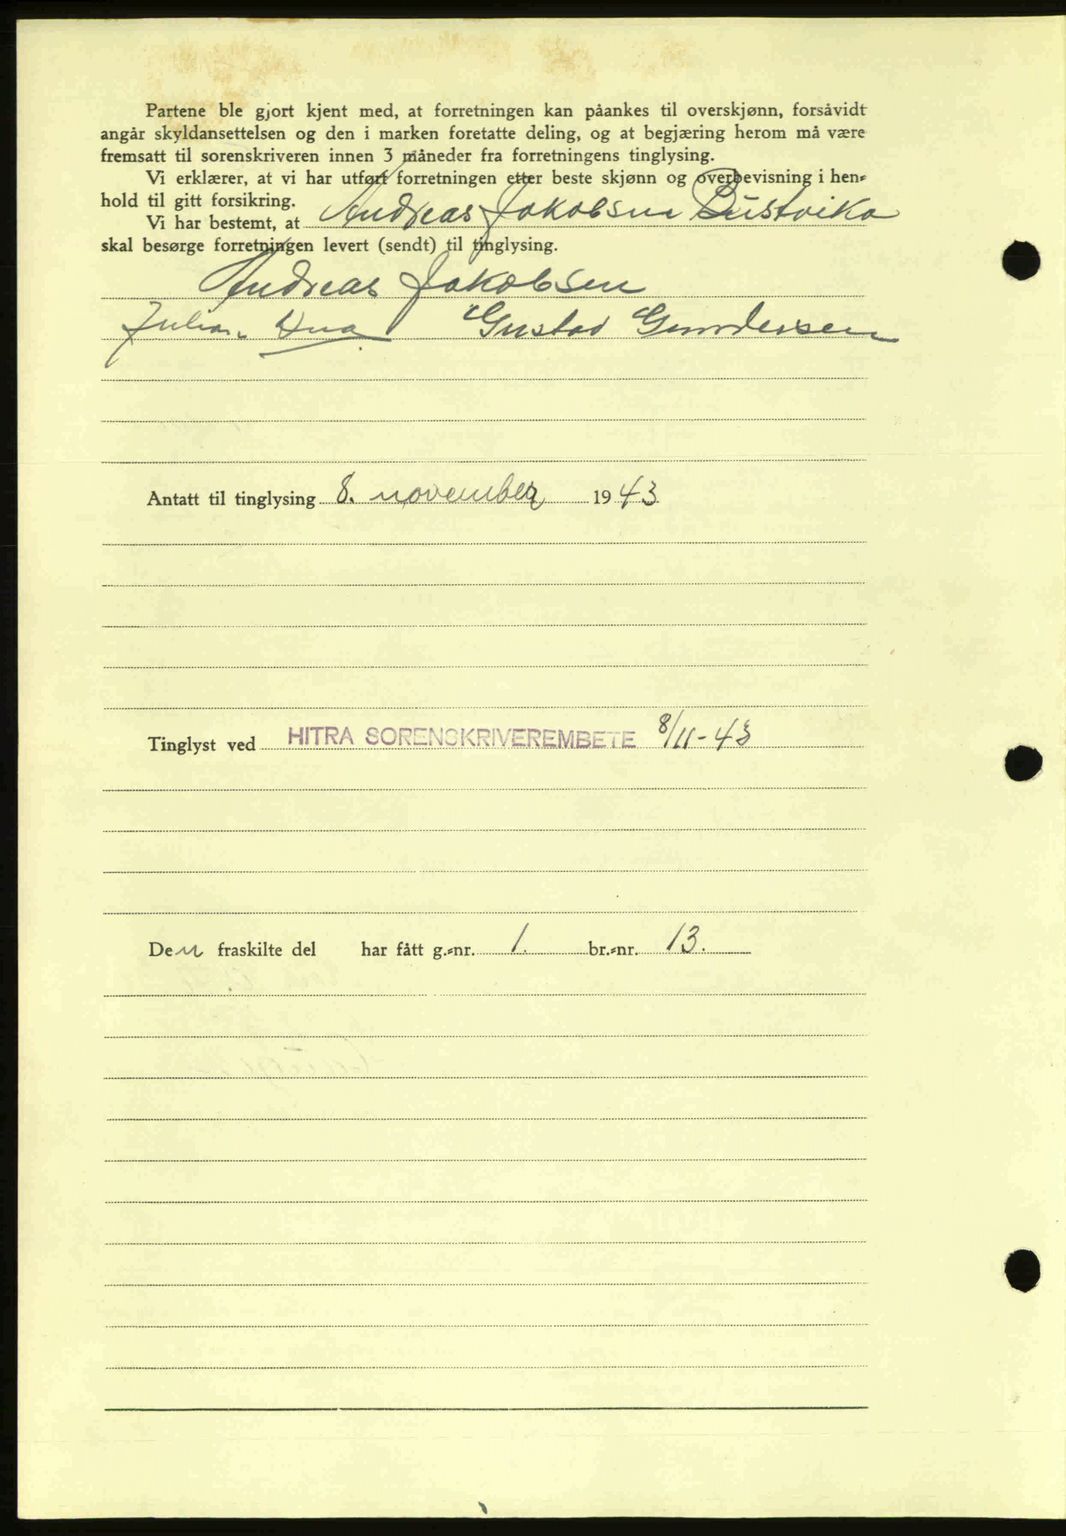 Partene ble gjort kjent med, at forretningen kan påankes til overskjønn, forsåvidt
angår skyldansettelsen og den i marken foretatte deling, og at begjæring herom må være
fremsatt til sorenskriveren innen 3 måneder fra forretningens tinglysing.
Vi erklærer, at vi har utført forretningen etter beste skjønn og overbevisning i hen-
hold til gitt forsikring.
Vi har bestemt, at Andreas Jakobsen Bustvika
skal besørge forretningen levert (sendt) til tinglysing.
Andreas Jakobsen
Julian Gustav Gundersen
Antatt til tinglysing 8. november 1943
Tinglyst ved HITRA SORENSKRIVEREMBETE 8/11-43
Den fraskilte del har fått g.-nr. 1. br.-nr. 13.